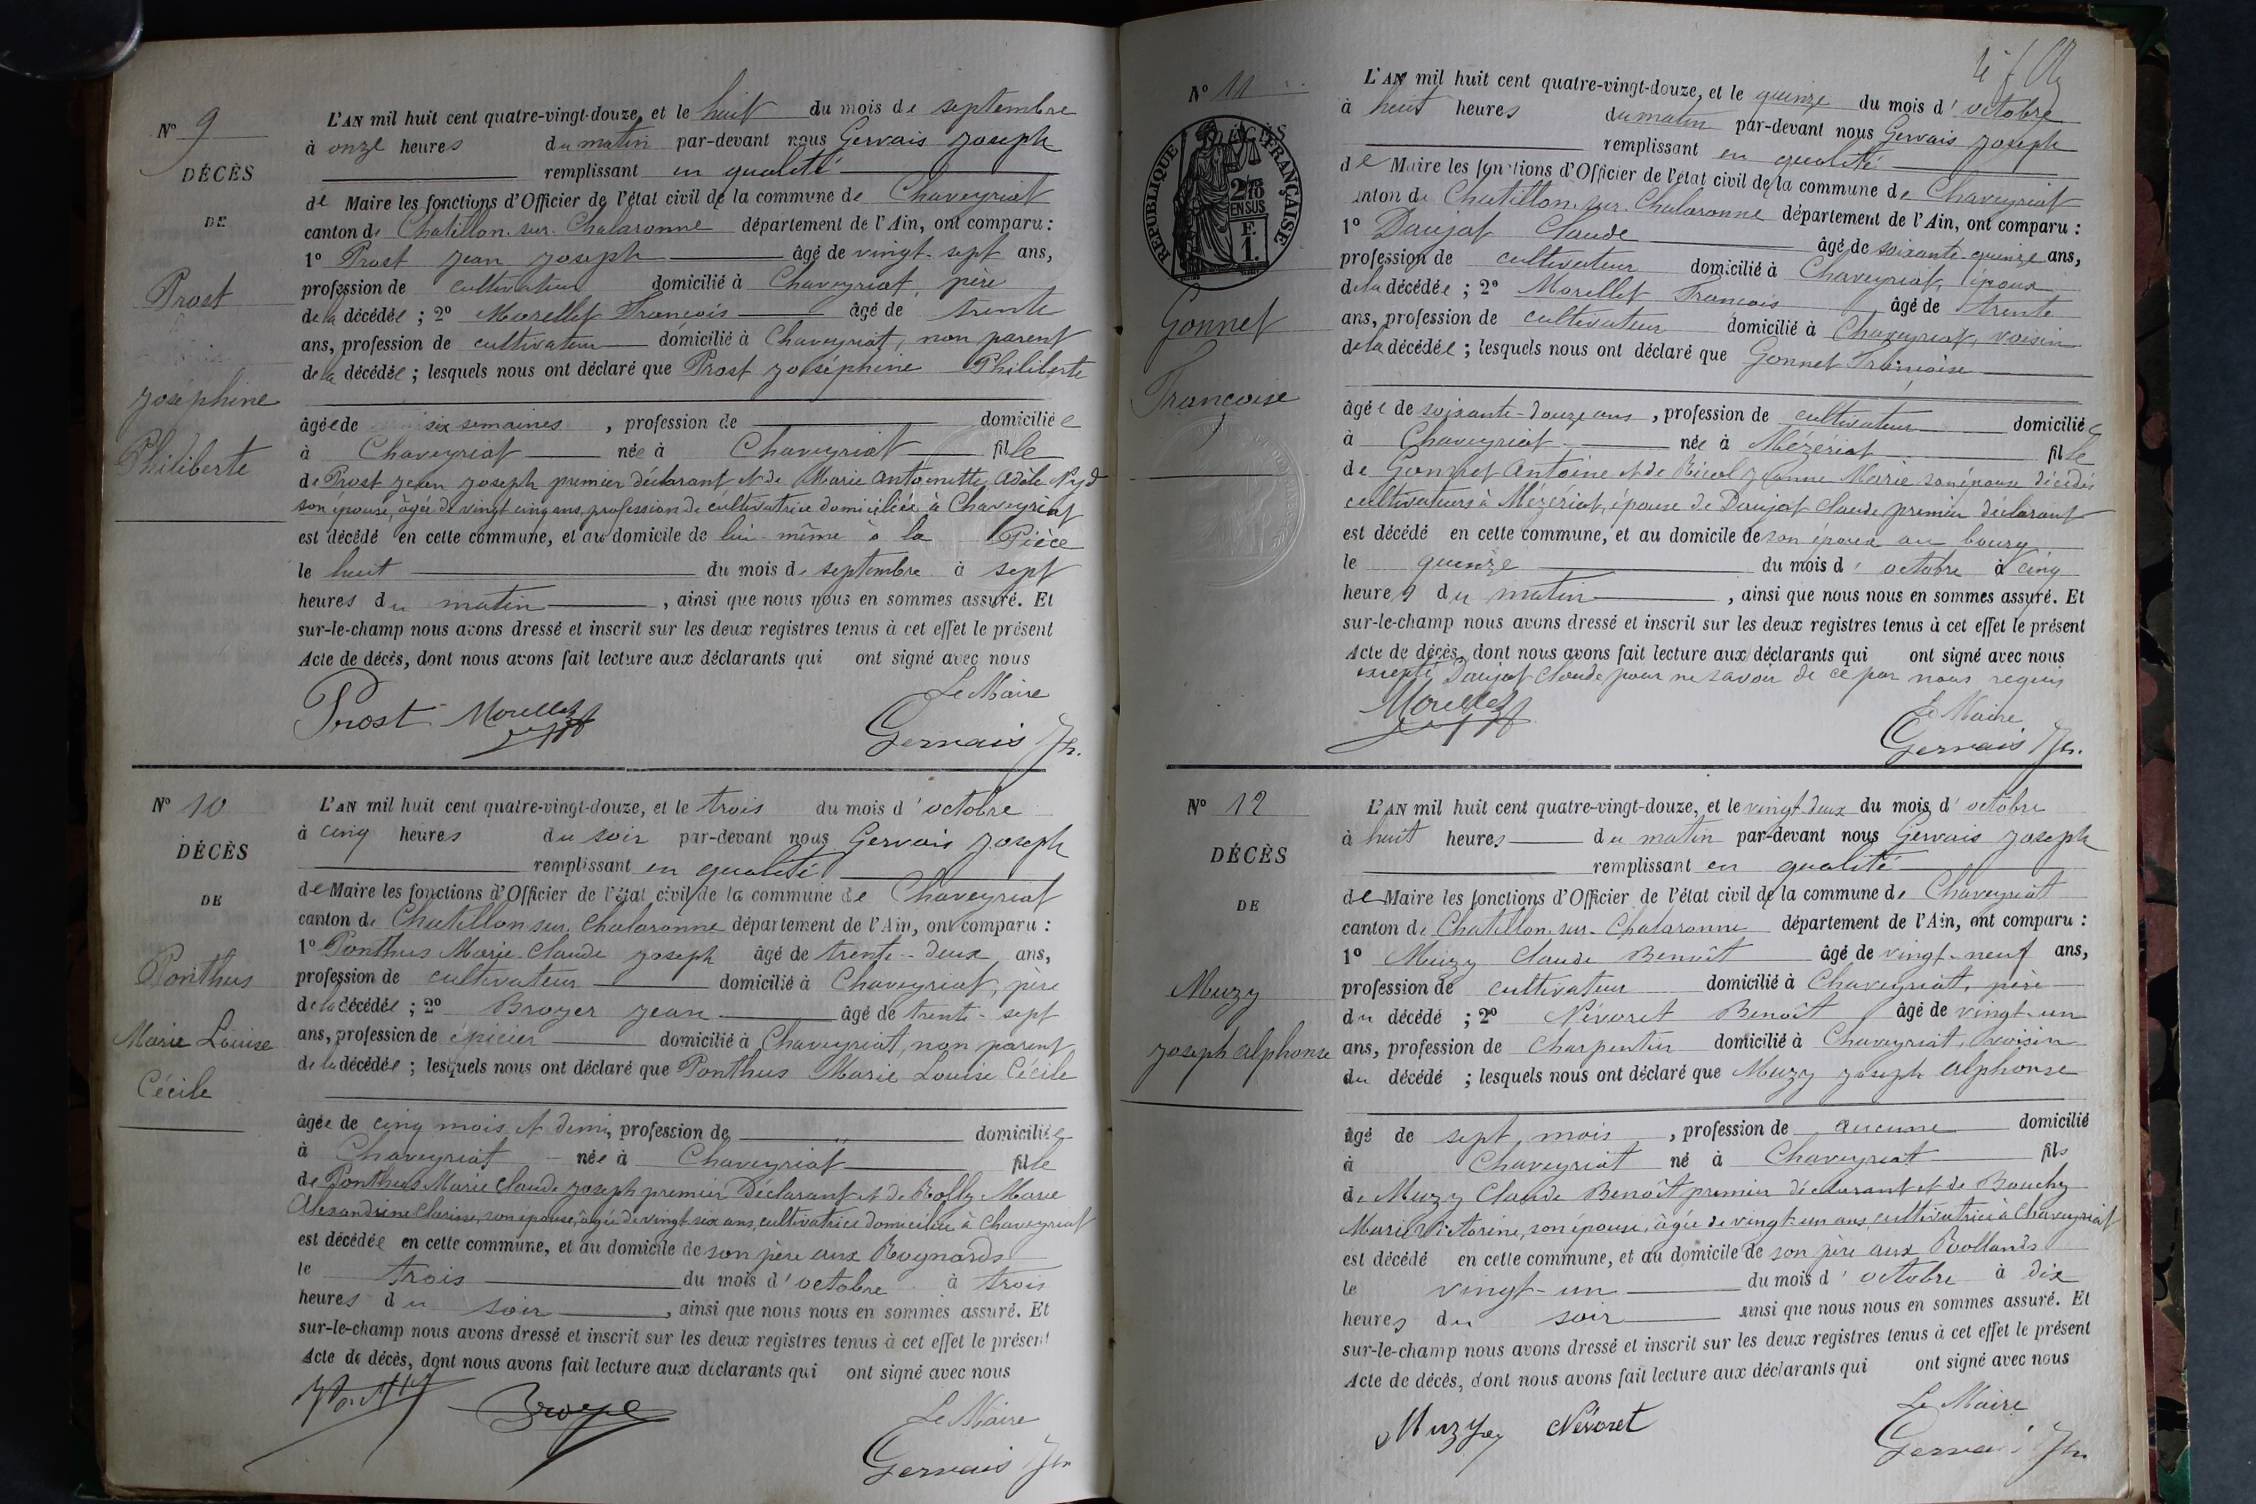 N° 9
DÉCÈS
DE
Prost
Joséphine
Philiberte
L'AN mil huit cent quatre-vingt-douze, et le huit du mois de septembre
à onze heures du matin par-devant nous Gervais Joseph
remplissant en qualité
de Maire les fonctions d'Officier de l'état civil de la commune de Chaveyriat
canton de Chatillon-sur-Chalaronne département de l'Ain, ont comparu :
1° Prost Jean Joseph âgé de vingt-sept ans,
profession de cultivateur domicilié à Chaveyriat, père
de la décédée ; 2° Morellet François âgé de trente
ans, profession de cultivateur domicilié à Chaveyriat, non parent
de la décédée ; lesquels nous ont déclaré que Prost Joséphine Philiberte
âgée de six semaines , profession de domiciliée
à Chaveyriat née à Chaveyriat fille
de Prost Jean Joseph premier déclarant et de Marie Antoinette Adèle
son épouse, âgée de vingt cinq ans, profession de cultivatrice domiciliée à Chaveyriat
est décédé en cette commune, et au domicile de lui-même à la Pièce
le huit du mois de septembre à sept
heures du matin , ainsi que nous nous en sommes assuré. Et
sur-le-champ nous avons dressé et inscrit sur les deux registres tenus à cet effet le présent
Acte de décès, dont nous avons fait lecture aux déclarants qui ont signé avec nous
Le Maire
Prost Morellet Gervais Jh.
N° 10
DÉCÈS
DE
Ponthus
Marie Louise
Cécile
L'AN mil huit cent quatre-vingt-douze, et le trois du mois d'octobre
à cinq heures du soir par-devant nous Gervais Joseph
remplissant en qualité
de Maire les fonctions d'Officier de l'état civil de la commune de Chaveyriat
canton de Chatillon sur Chalaronne département de l'Ain, ont comparu :
1° Ponthus Marie Claude Joseph âgé de trente-deux ans,
profession de cultivateur domicilié à Chaveyriat, père
de la décédée ; 2° Broyer Jean âgé de trente-sept
ans, profession de épicier domicilié à Chaveyriat, non parent
de la décédée ; lesquels nous ont déclaré que Ponthus Marie Louise Cécile
âgée de cinq mois et demi, profession de domiciliée
à Chaveyriat née à Chaveyriat fille
de Ponthus Marie Claude Joseph premier Déclarant et de Bolly Marie
Alexandrine Clarisse, son épouse, âgée de vingt-six ans, cultivatrice domiciliée à Chaveyriat
est décédée en cette commune, et au domicile de son père aux Roynards
le trois du mois d'octobre à trois
heures du soir , ainsi que nous nous en sommes assuré. Et
sur-le-champ nous avons dressé et inscrit sur les deux registres tenus à cet effet le présent
Acte de décès, dont nous avons fait lecture aux déclarants qui ont signé avec nous
Le Maire
Gervais Jh
N° 11
DÉCÈS
RÉPUBLIQUE FRANÇAISE
2/10
EN SUS
F.
1.
Gonnet
Françoise
L'AN mil huit cent quatre-vingt-douze, et le quinze du mois d'octobre
à huit heures du matin par-devant nous Gervais Joseph
remplissant en qualité
de Maire les fonctions d'Officier de l'état civil de la commune de Chaveyriat
canton de Chatillon-sur-Chalaronne département de l'Ain, ont comparu :
1° Daujat Claude âgé de soixante-quinze ans,
profession de cultivateur domicilié à Chaveyriat, époux
de la décédée ; 2° Morellet François âgé de trente
ans, profession de cultivateur domicilié à Chaveyriat, voisin
de la décédée ; lesquels nous ont déclaré que Gonnet Françoise
âgée de soixante-douze ans , profession de cultivateur domiciliée
à Chaveyriat née à Mézériat fille
de Gonnet Antoine et de Jeanne Marie son épouse décédés
cultivateurs à Mézériat, épouse de Daujat Claude premier déclarant
est décédé en cette commune, et au domicile de son époux au bourg
le quinze du mois d'octobre à cinq
heures du matin , ainsi que nous nous en sommes assuré. Et
sur-le-champ nous avons dressé et inscrit sur les deux registres tenus à cet effet le présent
Acte de décès, dont nous avons fait lecture aux déclarants qui ont signé avec nous
excepté Daujat Claude pour ne savoir de ce par nous requis
Morellet
Le Maire
Gervais Jh.
N° 12
DÉCÈS
DE
Muzy
Joseph Alphonse
L'AN mil huit cent quatre-vingt-douze, et le vingt-deux du mois d'octobre
à huit heures du matin par-devant nous Gervais Joseph
remplissant en qualité
de Maire les fonctions d'Officier de l'état civil de la commune de Chaveyriat
canton de Chatillon-sur-Chalaronne département de l'Ain, ont comparu :
1° Muzy Claude Benoît âgé de vingt-neuf ans,
profession de cultivateur domicilié à Chaveyriat, père
du décédé ; 2° Névoret Benoît âgé de vingt-un
ans, profession de charpentier domicilié à Chaveyriat, voisin
du décédé ; lesquels nous ont déclaré que Muzy Joseph Alphonse
âgé de sept mois , profession de aucune domicilié
à Chaveyriat né à Chaveyriat fils
de Muzy Claude Benoît premier déclarant et de Bouchy
Marie Victorine, son épouse, âgée de vingt-un ans, cultivatrice à Chaveyriat
est décédé en cette commune, et au domicile de son père aux Rollands
le vingt-un du mois d'octobre à dix
heures du soir ainsi que nous nous en sommes assuré. Et
sur-le-champ nous avons dressé et inscrit sur les deux registres tenus à cet effet le présent
Acte de décès, dont nous avons fait lecture aux déclarants qui ont signé avec nous
Le Maire
Muzy Névoret Gervais Jh.